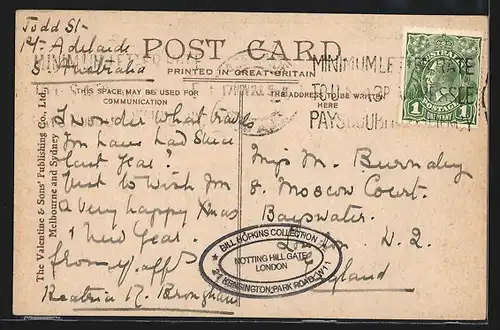 Todd St-
Pt- Adelaide
S Australia
POST CARD
PRINTED IN GREAT BRITAIN
THIS SPACE MAY BE USED FOR
COMMUNICATION
THE ADDRESS TO BE WRITTEN
HERE
MINIMUM LETTER RATE
TO U
PAYS DOUBLE
AUSTRALIA
POSTAGE
1
ONE PENNY
The Valentine & Sons' Publishing Co., Ltd.,
Melbourne and Sydney
I wonder what
you have had since
last year?
Just to wish you
a very happy Xmas
& New Year.
from
Beatrice R. Brougham
Miss M. Burnley
8. Moscow Court.
Bayswater.
W. 2.
England
BILL HOPKINS COLLECTION
NOTTING HILL GATE
LONDON
KENSINGTON PARK ROAD W11